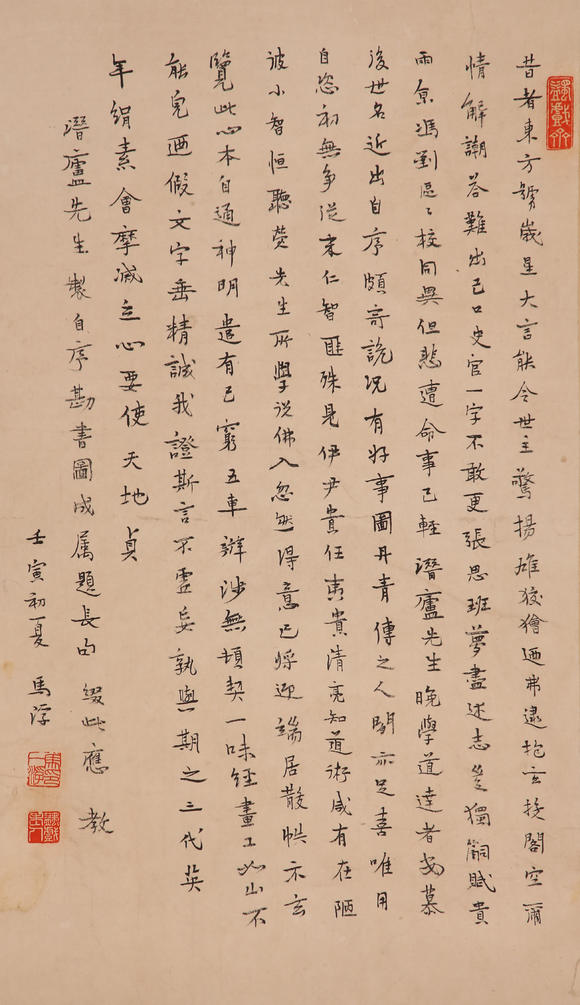 昔者東方號歲星大言能令世主驚揚雄狡獪迺弗逮抱玄投閣空爾
情解謿荅難出己口史官一字不敢更張思班夢盡述志豈獨嗣賦貴
兩京馮劉區〻校同異但悲遭命事已輕潛廬先生晚學道達者安慕
後世名近出自序頗奇詭況有好事圖丹青傳之人間亦足喜唯用
自恣初無爭從來仁智匪殊見伊尹貴任夷貴清亮知道術咸有在陋
彼小智恒聽熒先生所學說佛入忽然得意已婇迎端居散帙示玄
覽此心本自通神明遣有已窮五車辯涉無頓契一味經畫工如山不
能皃迺假文字垂精誠我證斯言不虛妄孰與期之三代英
年絹素會摩滅立心要使天地貞
潛廬先生製自序勘書圖成屬題長句 綴此應 教
壬寅初夏 馬浮
蠲戲齋